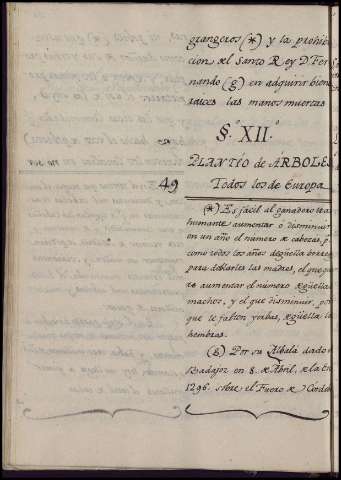 grangeros (*) y la prohibi
cion del Santo Rey D. Fer
nando (g) en adquirir bien
raices las manos muertas
§.º XII.º
PLANTÍO de ÁRBOLES
49 Todos los de Europa
(*) Es facil al ganadero tras
humante aumentar o disminuir
en un año el número de cabezas, p
como todos los años deguella borre
para doblarles las madres, el que qu
re aumentar el número deguella
machos, y el que disminuir, por
que le falten yerbas, deguella
hembras.
(g) Por su Albala dado
Badajoz en 8. de Abril, de la Er
1296. sobre el Fuero de Cordob